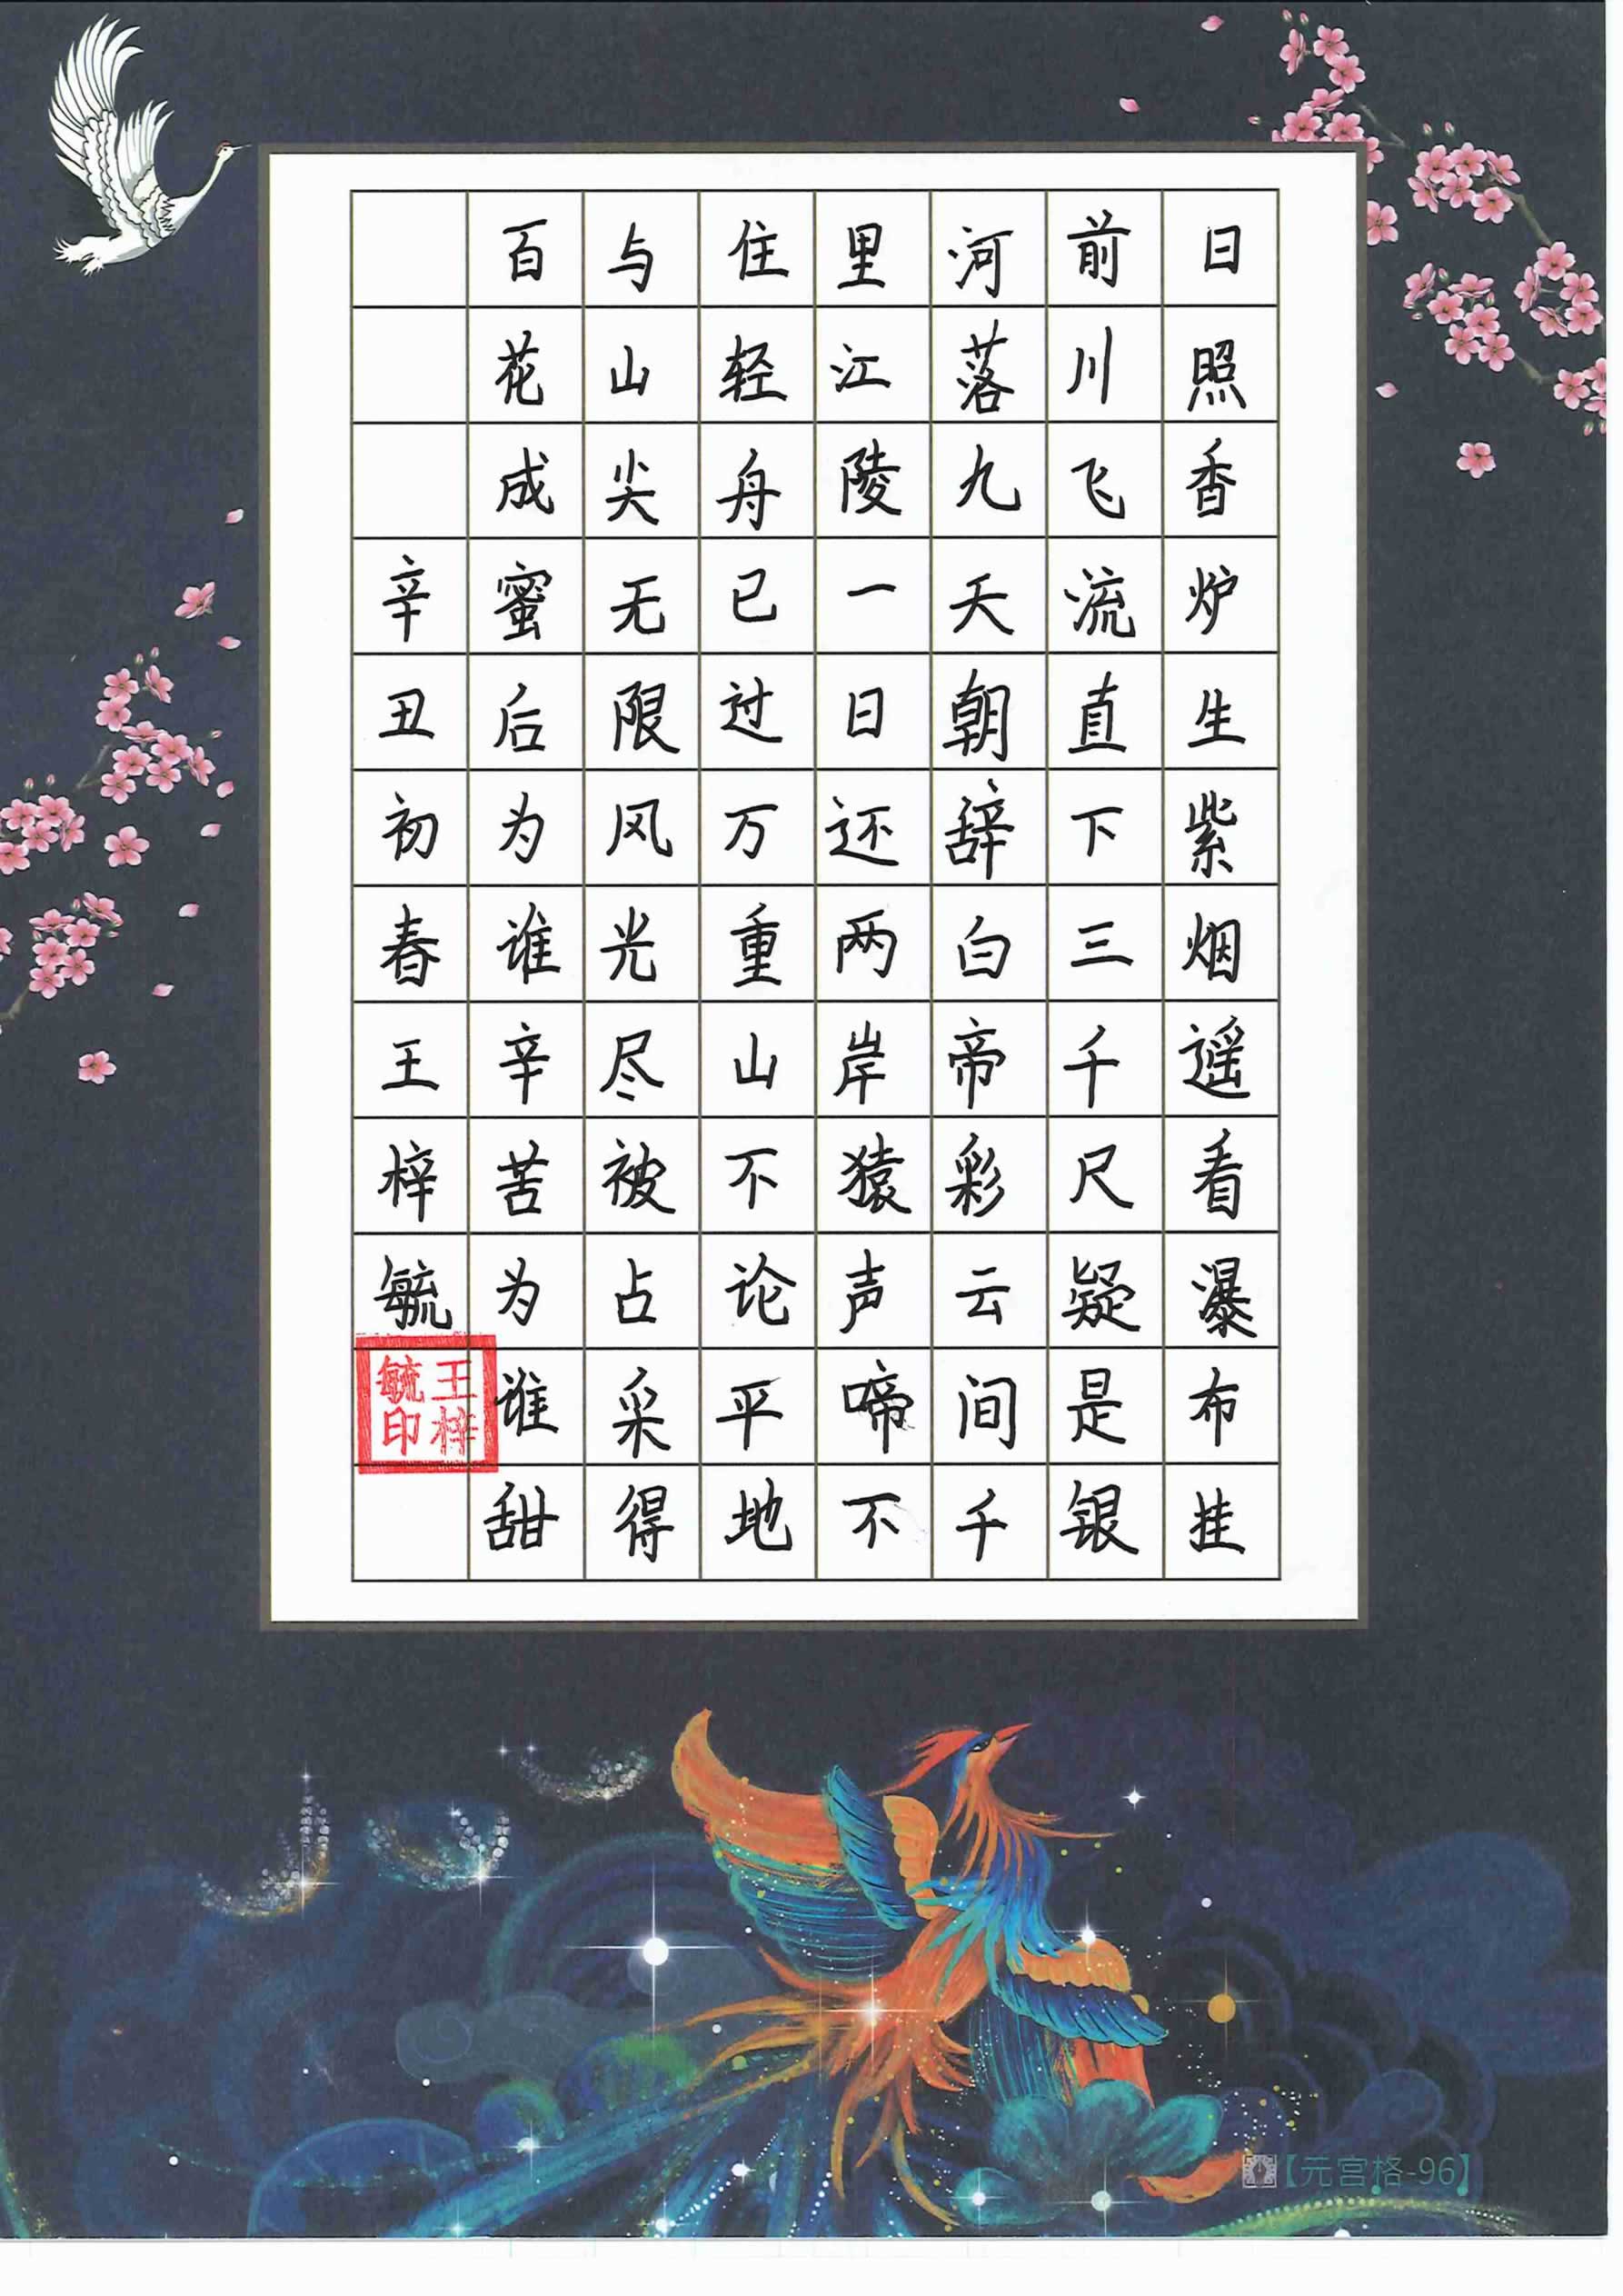 日照香炉生紫烟遥看瀑布挂
前川飞流直下三千尺疑是银
河落九天朝辞白帝彩云间千
里江陵一日还两岸猿声啼不
住轻舟已过万重山不论平地
与山尖无限风光尽被占采得
百花成蜜后为谁辛苦为谁甜
辛丑初春王梓毓
王梓毓印
【元宫格-96】